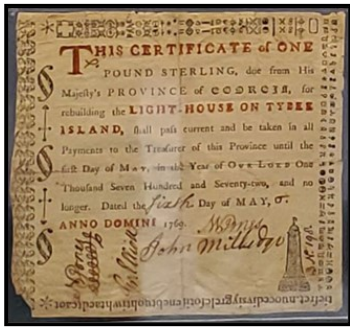 THIS CERTIFICATE of ONE
POUND STERLING, due from His
Majesty's PROVINCE of GEORGIA, for
rebuilding the LIGHT-HOUSE ON TYBEE
ISLAND, shall pass current and be taken in all
Payments to the Treasurer of this Province until the
first Day of MAY, in the Year of OUR LORD One
Thousand Seven Hundred and Seventy-two, and no
longer. Dated the sixth Day of MAY,
ANNO DOMINI 1769.
John Milledge